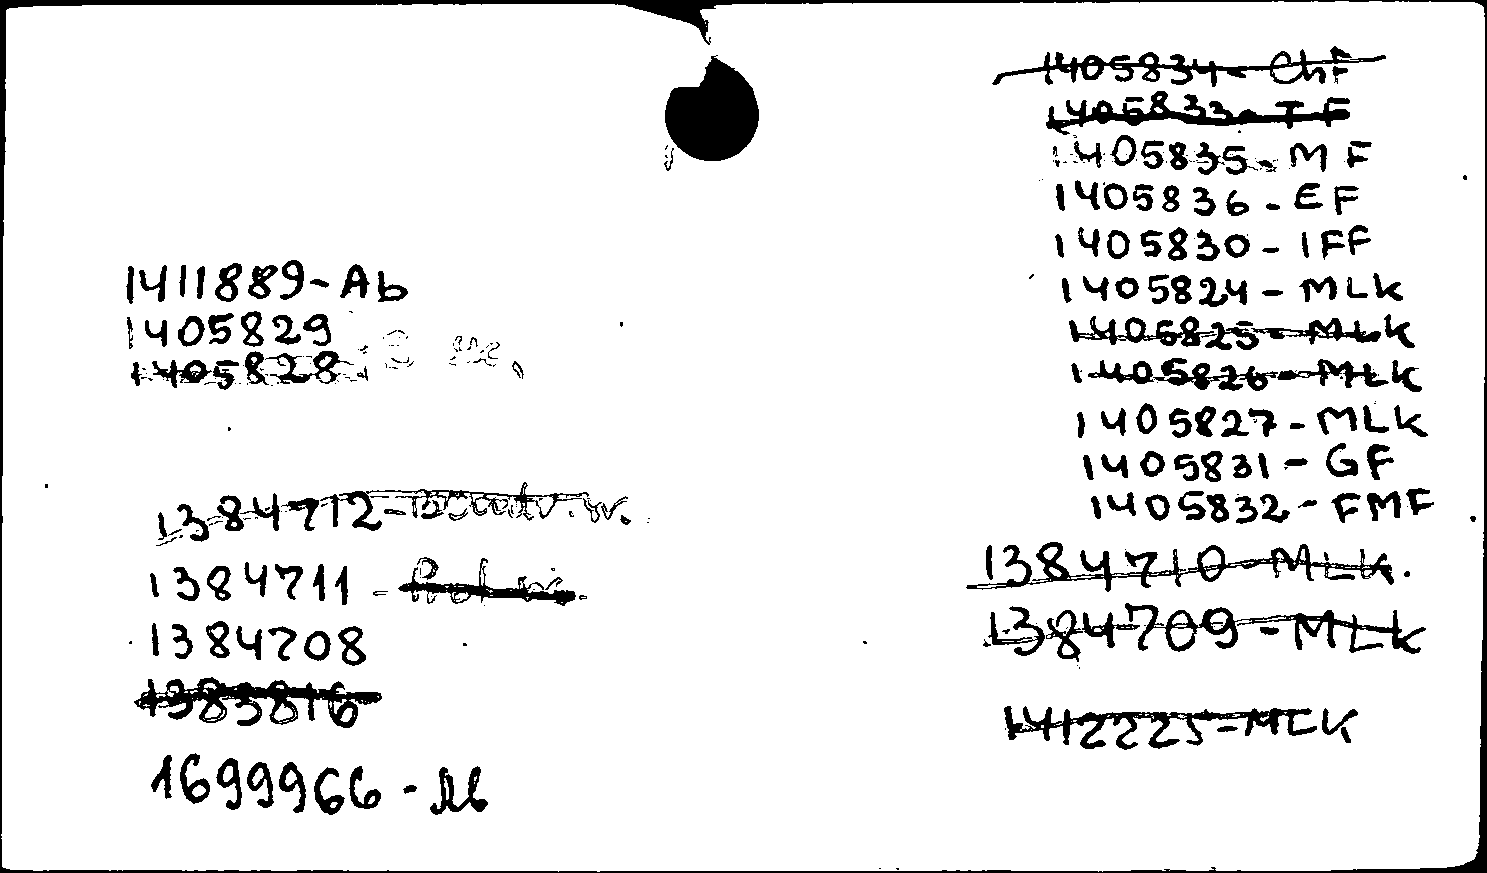 1411889-Ab
1405829
1405828
1384712-
1384711 -
1384708
1383816
1699966 -
1405834- ChF
1405833- TF
1405835- MF
1405836- EF
1405830- IFF
1405824- MLK
1405825- MLK
1405826- MLK
1405827- MLK
1405831- GF
1405832- FMF
1384710-MLK.
1384709-MLK
1412225-MLK